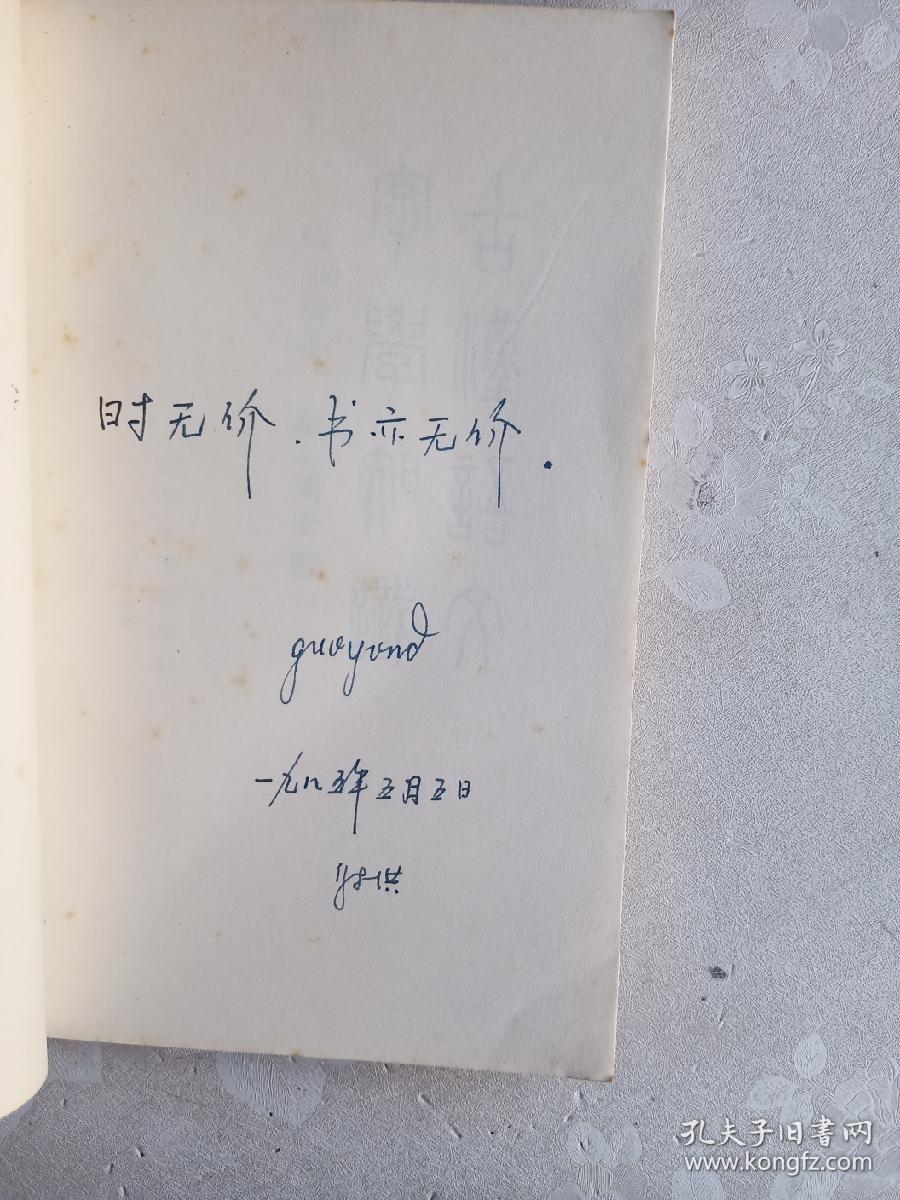 时无价．书亦无价．
guoyond
一九八五年五月五日
古漢語文
字學
孔夫子旧書网
www.kongfz.com